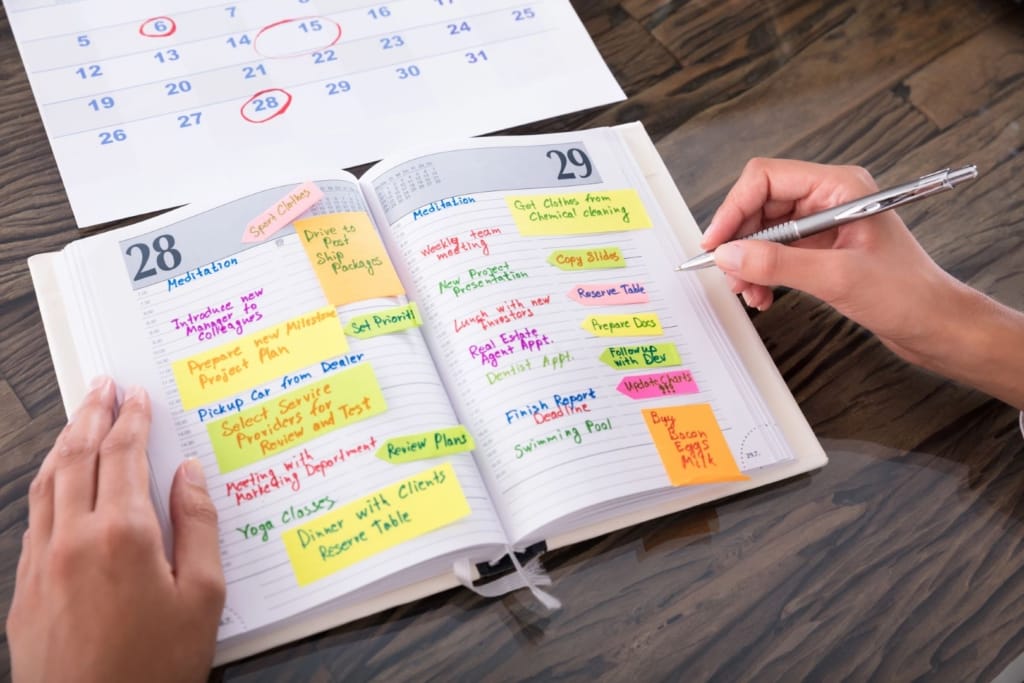 5 6 7
12 13 14 15 16
19 20 21 22 23 24 25
26 27 28 29 30 31
28
Sport Clothes
Meditation
Drive to
Post
Ship
Packages
Introduce new
Manager to
colleagues
Set Priorit!
Prepare new Milestone
Project Plan
Pickup Car from Dealer
Select Service
Providers for
Review and Test
Meeting with
Marketing Department
Review Plans
Yoga Classes
Dinner with Clients
Reserve Table
29
Meditation
Get Clothes from
Chemical cleaning
Weekly team
meeting
Copy Slides
New Project
Presentation
Reserve Table
Lunch with new
Investors
Prepare Docs
Real Estate
Agent Appt.
Followup
with Dev
Dentist Appt.
Update Charts
!!!
Finish Report
Deadline
Buy
Bacon
Eggs
Milk
Swimming Pool